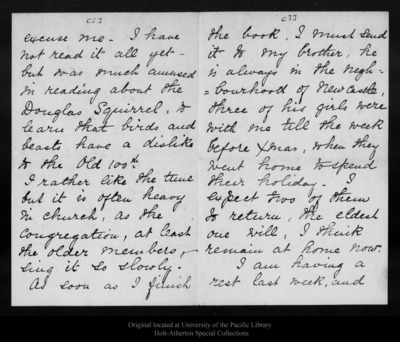 [2]
excuse me. I have
not read it all yet -
but was much amused
in reading about the
Douglas Squirrel, &
learn that birds and
beasts have a dislike
to the Old 100th.
I rather like the tune
but it is often heavy
in church, as the
congregation, at least
the older members, -
sing it so slowly.
As soon as I finish
[3]
the book, I must send
it to my brother, he
is always in the neigh-
=bourhood of Newcastle,
three of his girls were
with me till the week
before Xmas, when they
went home to spend
their holiday. I
expect two of them
to return, the eldest
one will, I think
remain at home now.
I am having a
rest last week, and
Original located at University of the Pacific Library
Holt-Atherton Special Collections